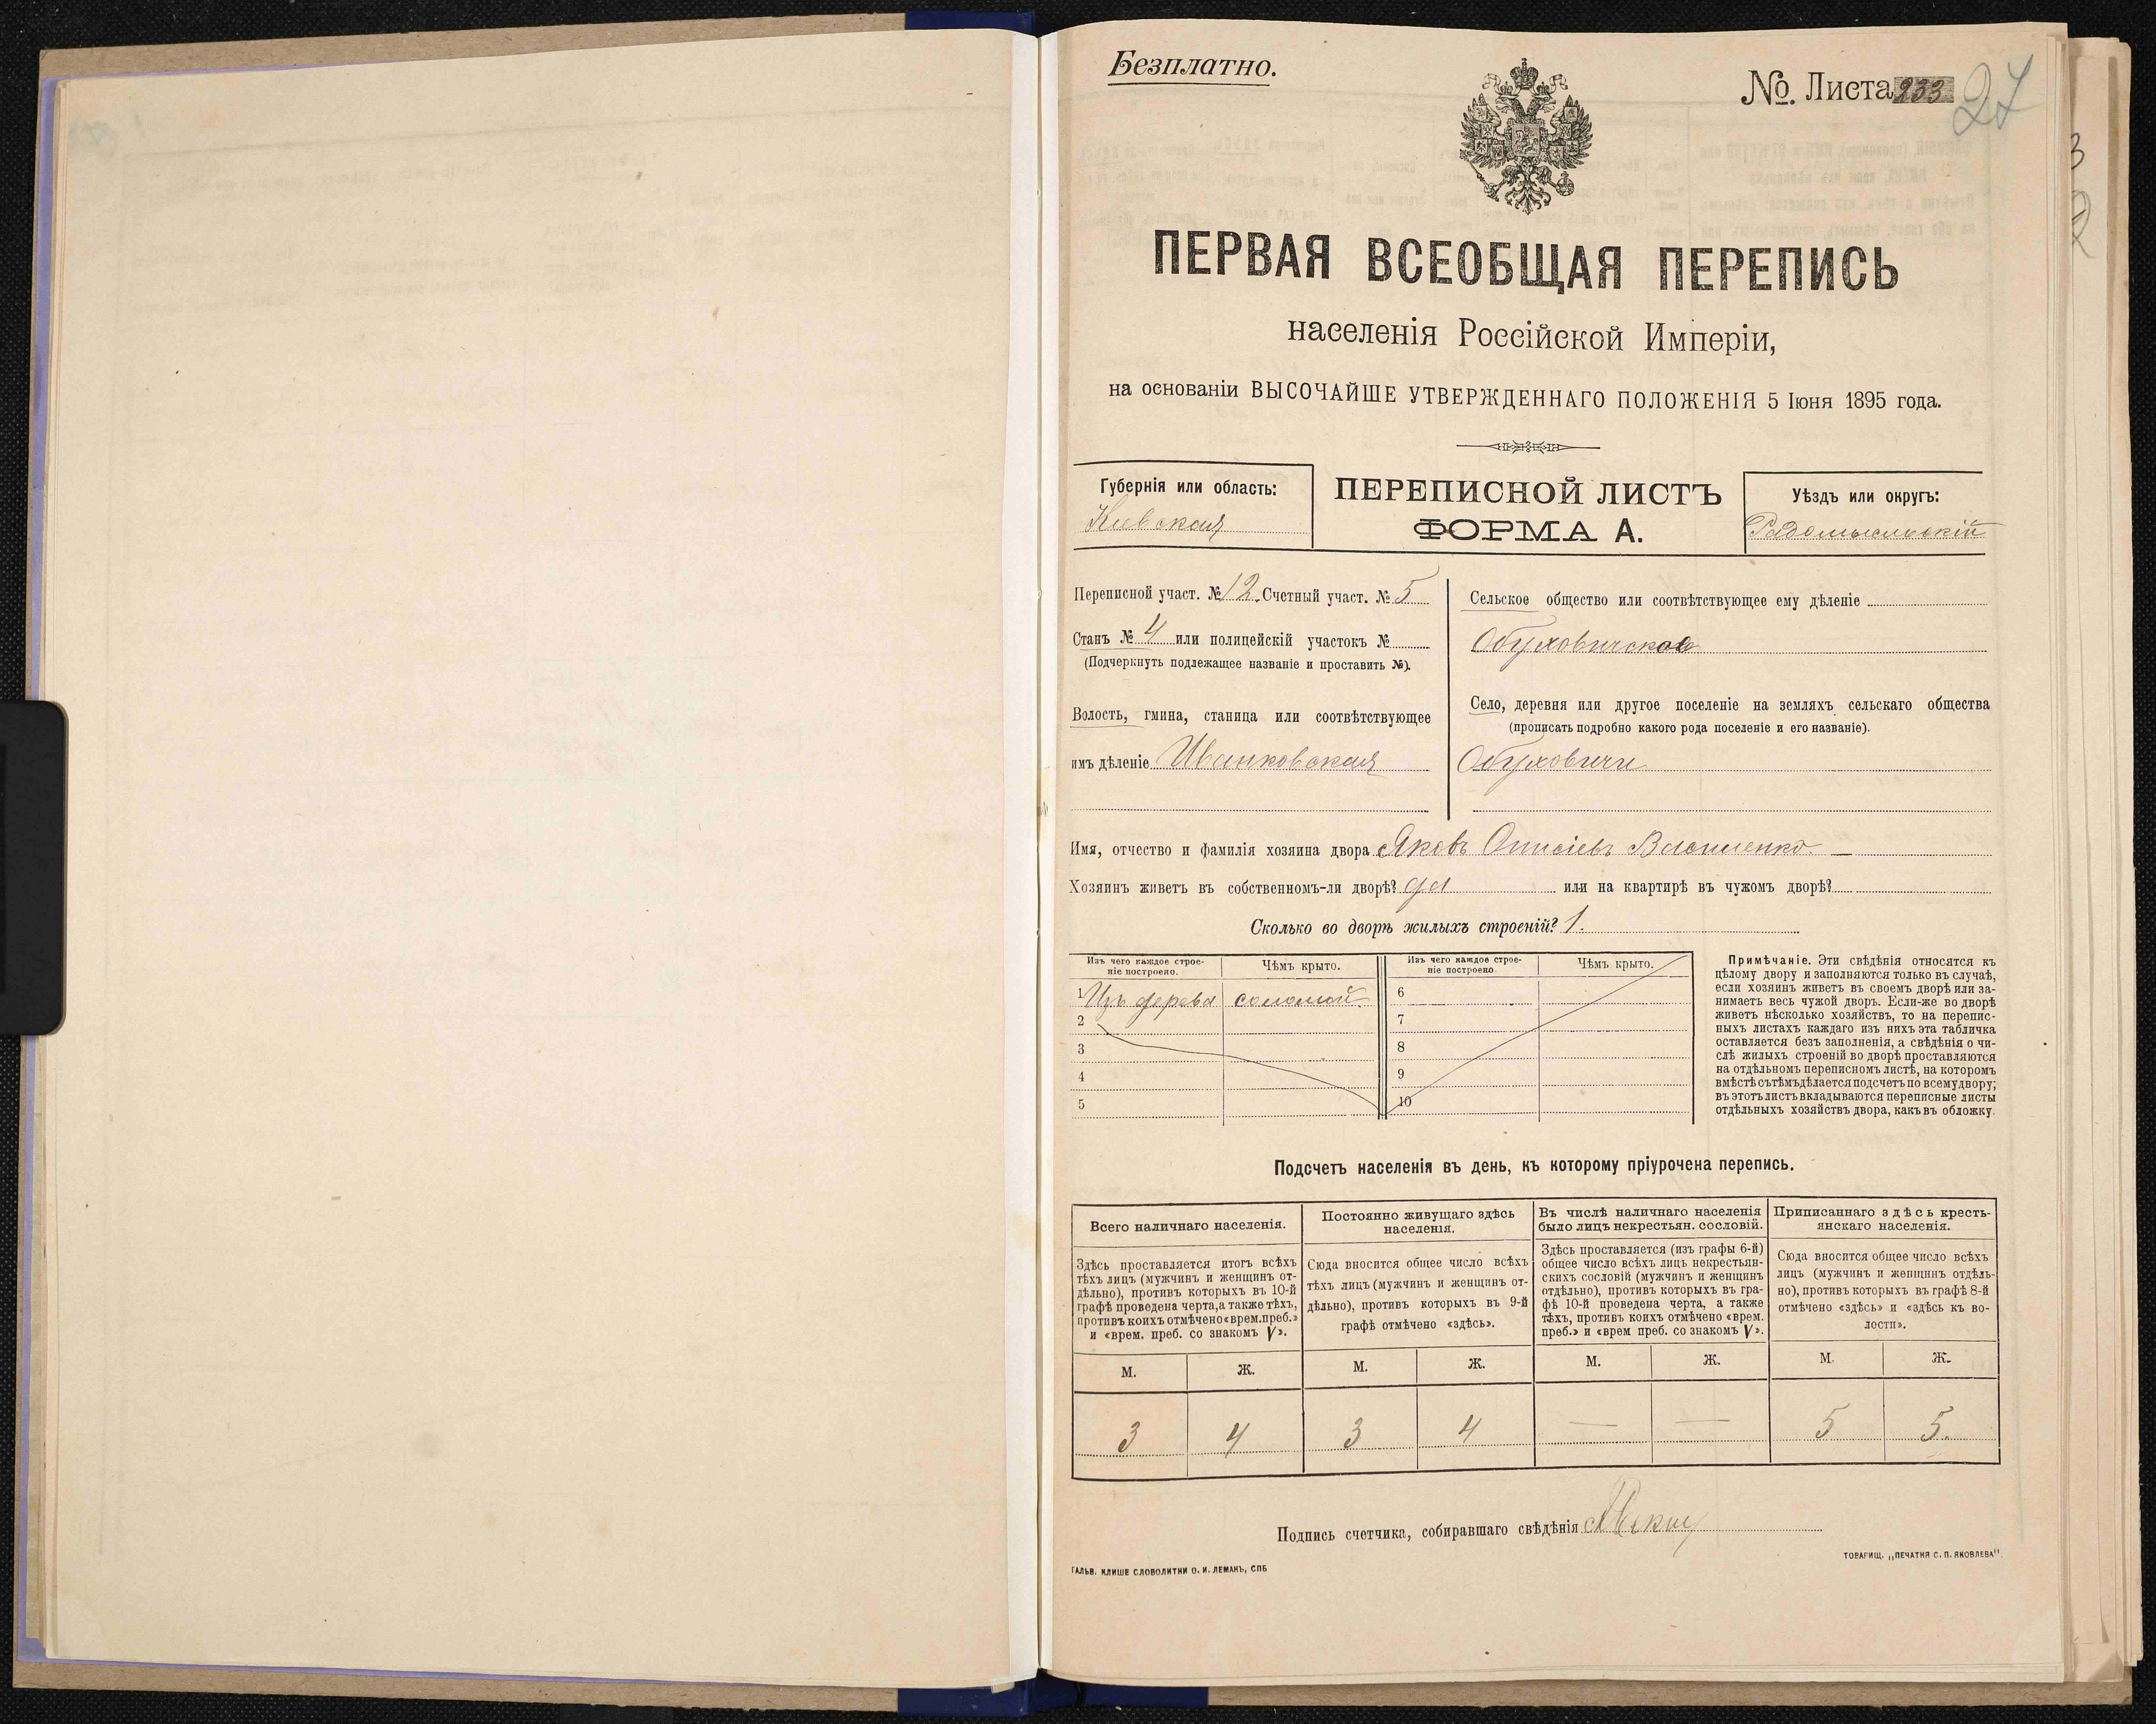 Безплатно.
№. Листа 233 27
ПЕРВАЯ ВСЕОБЩАЯ ПЕРЕПИСЬ
населенія Россійской Имперіи,
на основаніи ВЫСОЧАЙШЕ УТВЕРЖДЕННАГО ПОЛОЖЕНІЯ 5 Іюня 1895 года.
Губернія или область:
Кіевская
ПЕРЕПИСНОЙ ЛИСТЪ
ФОРМА А.
Уѣздъ или округъ:
Радомысльскій
Переписной участ. № 12. Счетный участ. № 5
Станъ № 4 или полицейскій участокъ №
(Подчеркнуть подлежащее названіе и проставить №).
Волость, гмина, станица или соотвѣтствующее
имъ дѣленіе Иванковская
Сельское общество или соотвѣтствующее ему дѣленіе
Обуховичское
Село, деревня или другое поселеніе на земляхъ сельскаго общества
(прописать подробно какого рода поселеніе и его названіе).
Обуховичи
Имя, отчество и фамилія хозяина двора Яковъ Василенко
Хозяинъ живетъ въ собственномъ-ли дворѣ? да или на квартирѣ въ чужомъ дворѣ?
Сколько во дворѣ жилыхъ строеній? 1.
Изъ чего каждое строе-
ніе построено.
Чѣмъ крыто.
Изъ чего каждое строе-
ніе построено
Чѣмъ крыто.
1 Изъ дерева соломой 6
2 7
3 8
4 9
5 10
Примѣчаніе. Эти свѣдѣнія относятся къ
цѣлому двору и заполняются только въ случаѣ,
если хозяинъ живетъ въ своемъ дворѣ или за-
нимаетъ весь чужой дворъ. Если-же во дворѣ
живетъ нѣсколько хозяйствъ, то на перепис-
ныхъ листахъ каждаго изъ нихъ эта табличка
оставляется безъ заполненія, а свѣдѣнія о чи-
слѣ жилыхъ строеній во дворѣ проставляются
на отдѣльномъ переписномъ листѣ, на которомъ
вмѣстѣ сътѣмъ дѣлается подсчетъ по всему двору;
въ этотъ листъ вкладываются переписные листы
отдѣльныхъ хозяйствъ двора, какъ въ обложку.
Подсчетъ населенія въ день, къ которому пріурочена перепись.
Всего наличнаго населенія.
Здѣсь проставляется итогъ всѣхъ
тѣхъ лицъ (мужчинъ и женщинъ от-
дѣльно), противъ которыхъ въ 10-й
графѣ проведена черта, а также тѣхъ,
противъ коихъ отмѣчено «врем. преб.»
и «врем. преб. со знакомъ V».
Постоянно живущаго здѣсь
населенія.
Сюда вносится общее число всѣхъ
тѣхъ лицъ (мужчинъ и женщинъ от-
дѣльно), противъ которыхъ въ 9-й
графѣ отмѣчено «здѣсь».
Въ числѣ наличнаго населенія
было лицъ некрестьян. сословій.
Здѣсь проставляется (изъ графы 6-й)
общее число всѣхъ лицъ некрестьян-
скихъ сословій (мужчинъ и женщинъ
отдѣльно), противъ которыхъ въ гра-
фѣ 10-й проведена черта, а также
тѣхъ, противъ коихъ отмѣчено «врем.
преб.» и «врем преб. со знакомъ V».
Приписаннаго здѣсь кресть-
янскаго населенія.
Сюда вносится общее число всѣхъ
лицъ (мужчинъ и женщинъ отдѣль-
но), противъ которыхъ въ графѣ 8-й
отмѣчено «здѣсь» и «здѣсь къ во-
лости».
М. Ж. М. Ж. М. Ж. М. Ж.
3 4 3 4 — — 5 5.
Подпись счетчика, собиравшаго свѣдѣнія
ГАЛЬВ. КЛИШЕ СЛОВОЛИТНИ О. И. ЛЕМАНЪ, СПБ
ТОВАРИЩ. „ПЕЧАТНЯ С. П. ЯКОВЛЕВА“.